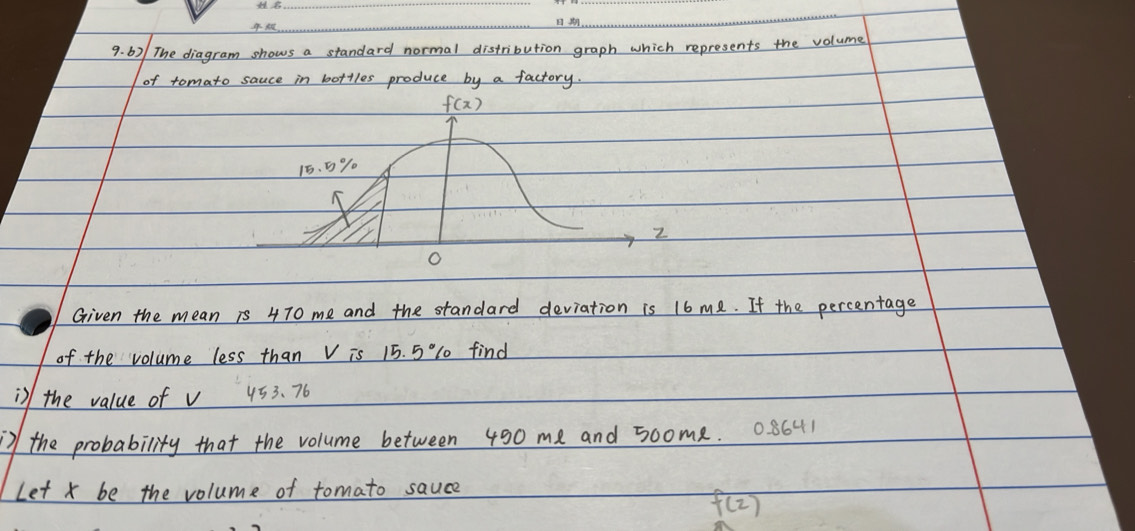 姓名
年级 日期
9.b) The diagram shows a standard normal distribution graph which represents the volume
of tomato sauce in bottles produce by a factory.
f(x)
15.5%
z
0
Given the mean is 470 ml and the standard deviation is 16 ml. If the percentage
of the volume less than V is 15.5% find
i) the value of V 453.76
i) the probability that the volume between 450 ml and 500 ml. 0.8641
Let X be the volume of tomato sauce
f(z)